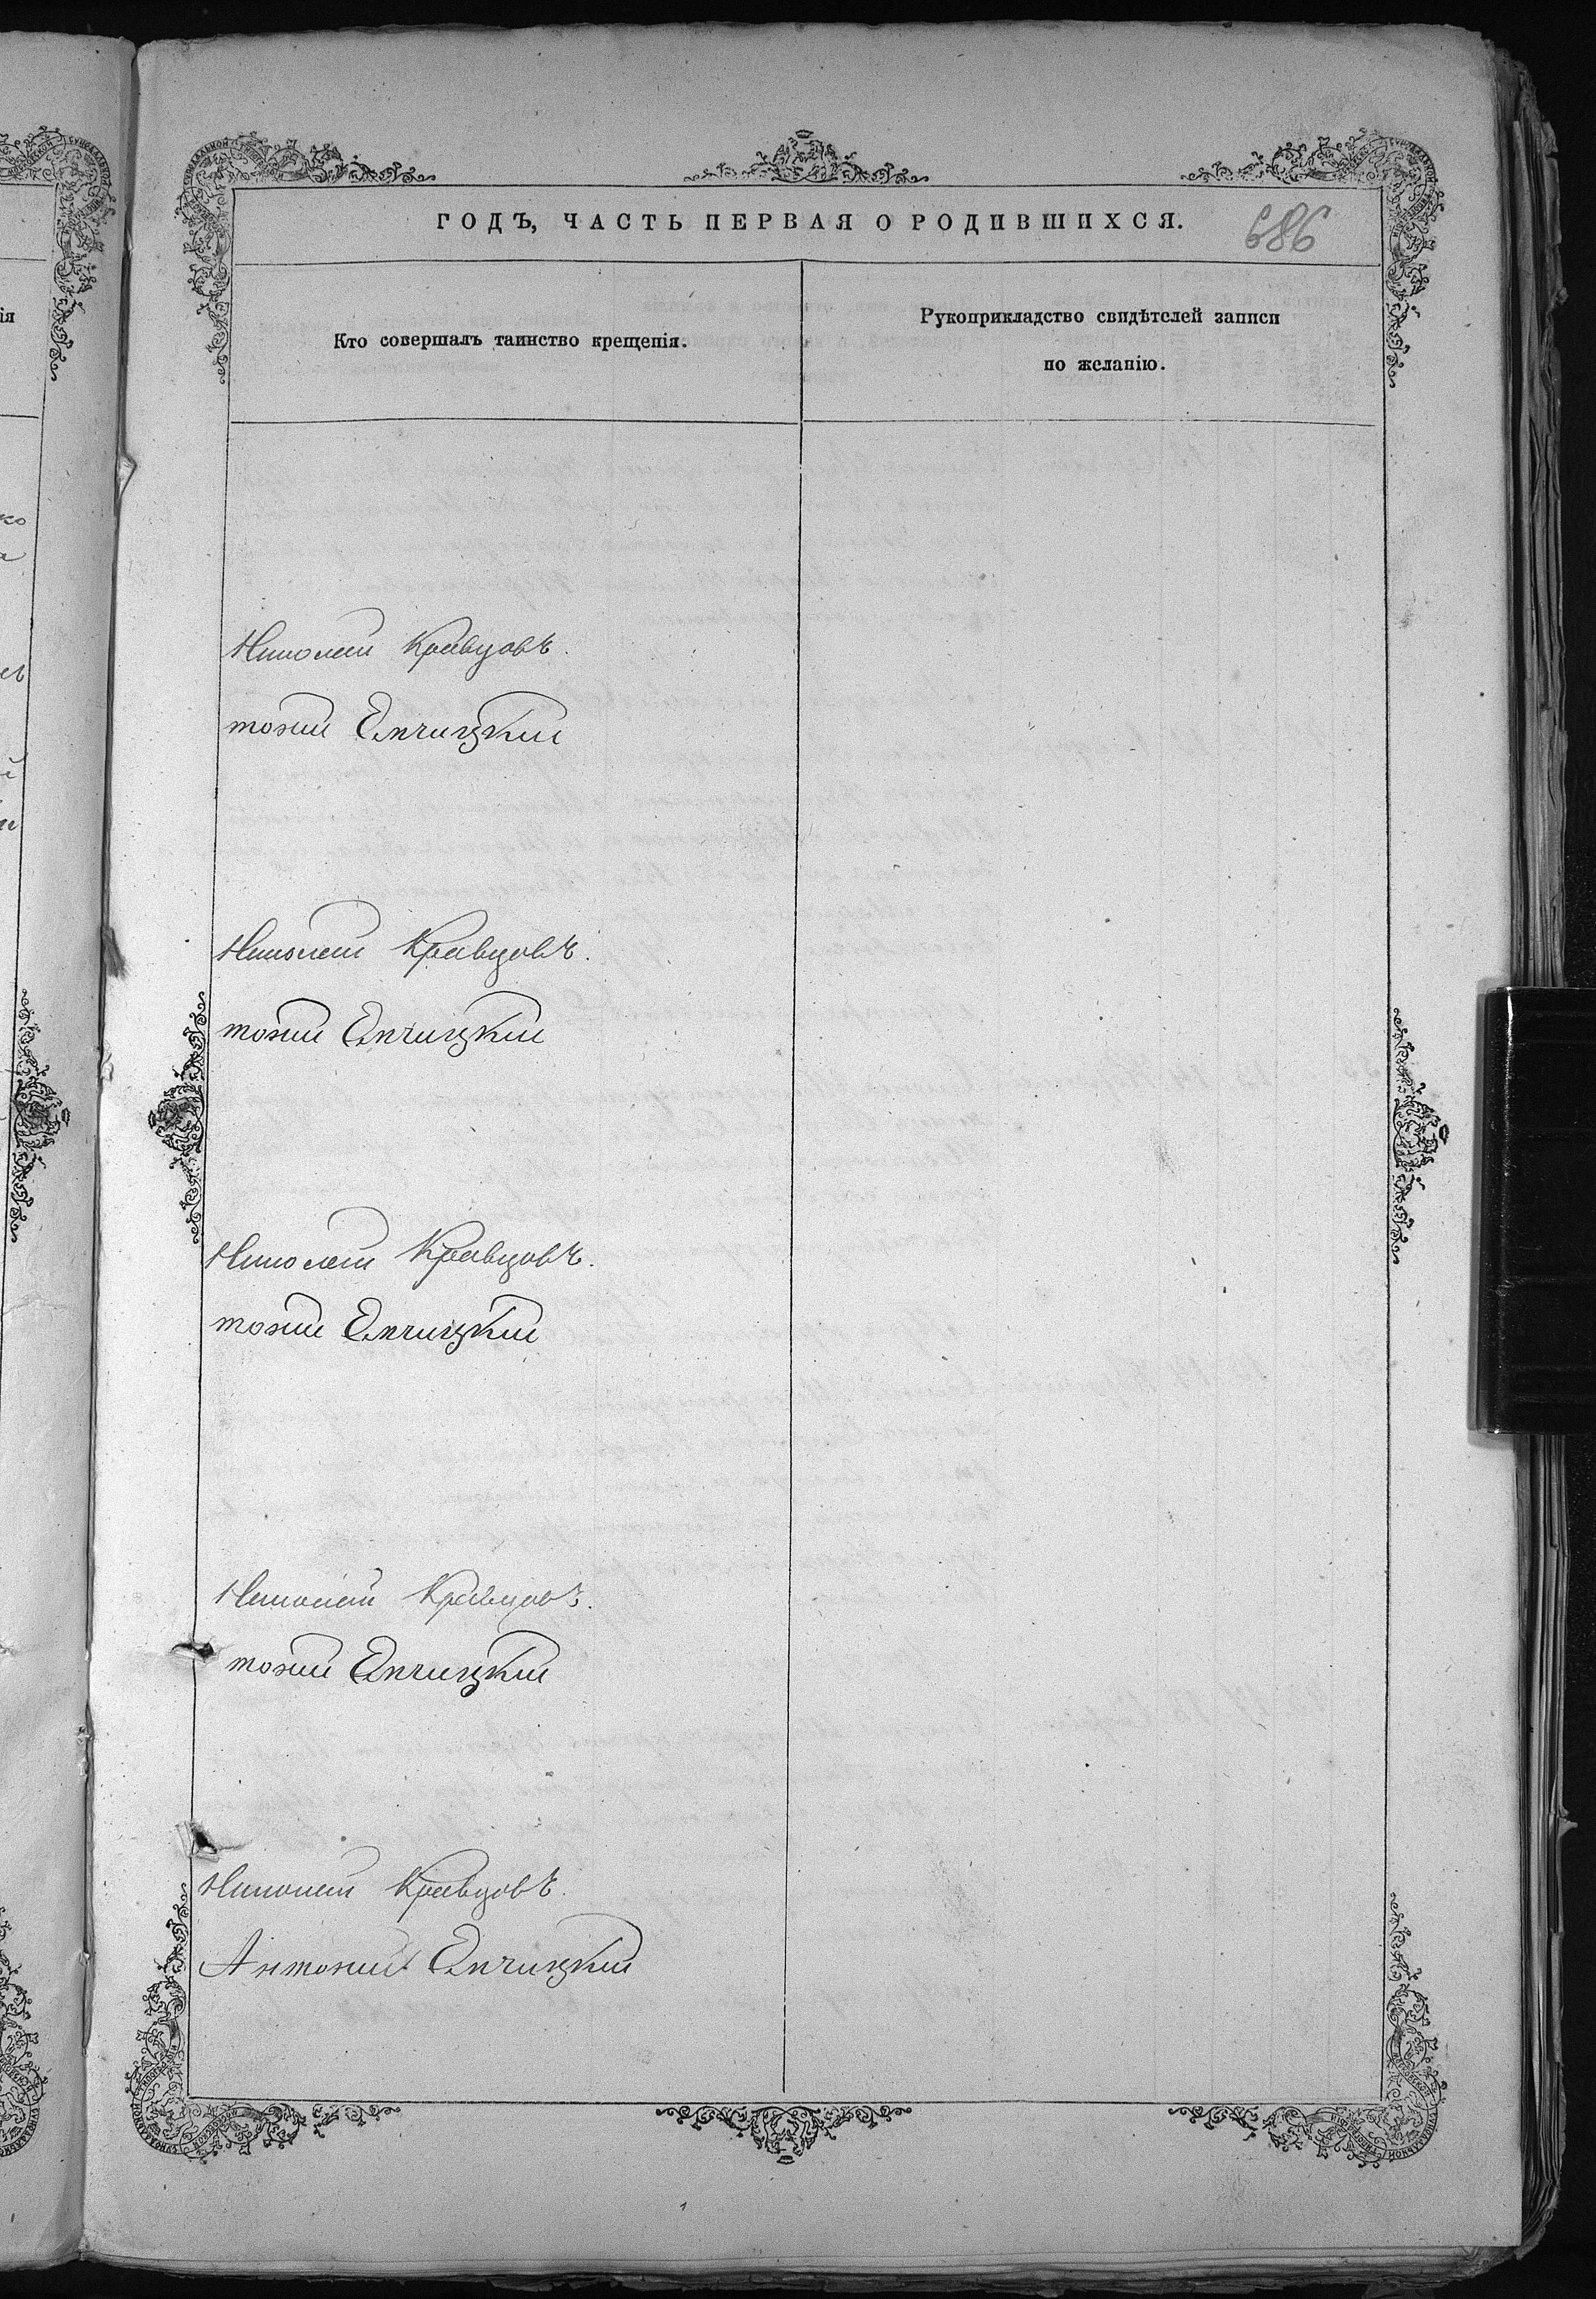 ГОДЪ, ЧАСТЬ ПЕРВАЯ О РОДИВШИХСЯ.
686
Кто совершалъ таинство крещенія.
Рукоприкладство свидѣтелей записи
по желанію.
Николай Кравцовъ.
тоній
Николай Кравцовъ.
тоній
Николай Кравцовъ.
тоній
Николай Кравцовъ.
тоній
Николай Кравцовъ.
Антоній